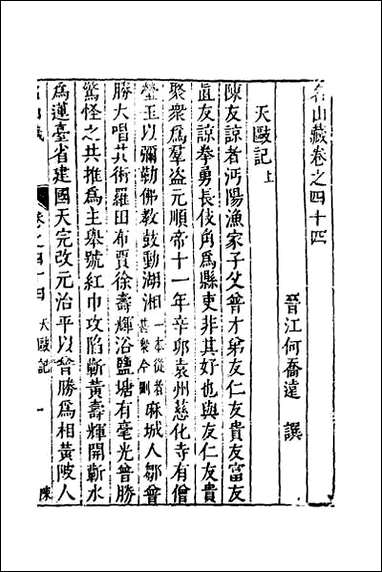 名山藏卷之四十四
晉江何喬遠 譔
天敺記上
陳友諒者沔陽漁家子父普才弟友仁友貴友富友
直友諒拳勇長伎角為縣吏非其好也與友仁友貴
聚衆為羣盗元順帝十一年辛卯袁州慈化寺有僧
瑩玉以彌勒佛教鼓動湖湘一本從者甚衆今刪麻城人鄒普
勝大唱其術羅田布賈徐壽輝浴鹽塘有毫光普勝
驚怪之共推為主舉號紅巾攻陷蘄黃壽輝開蘄水
為蓮臺省建國天完改元治平以普勝為相黃陂人
卷之四十四 天敺記 一
陳